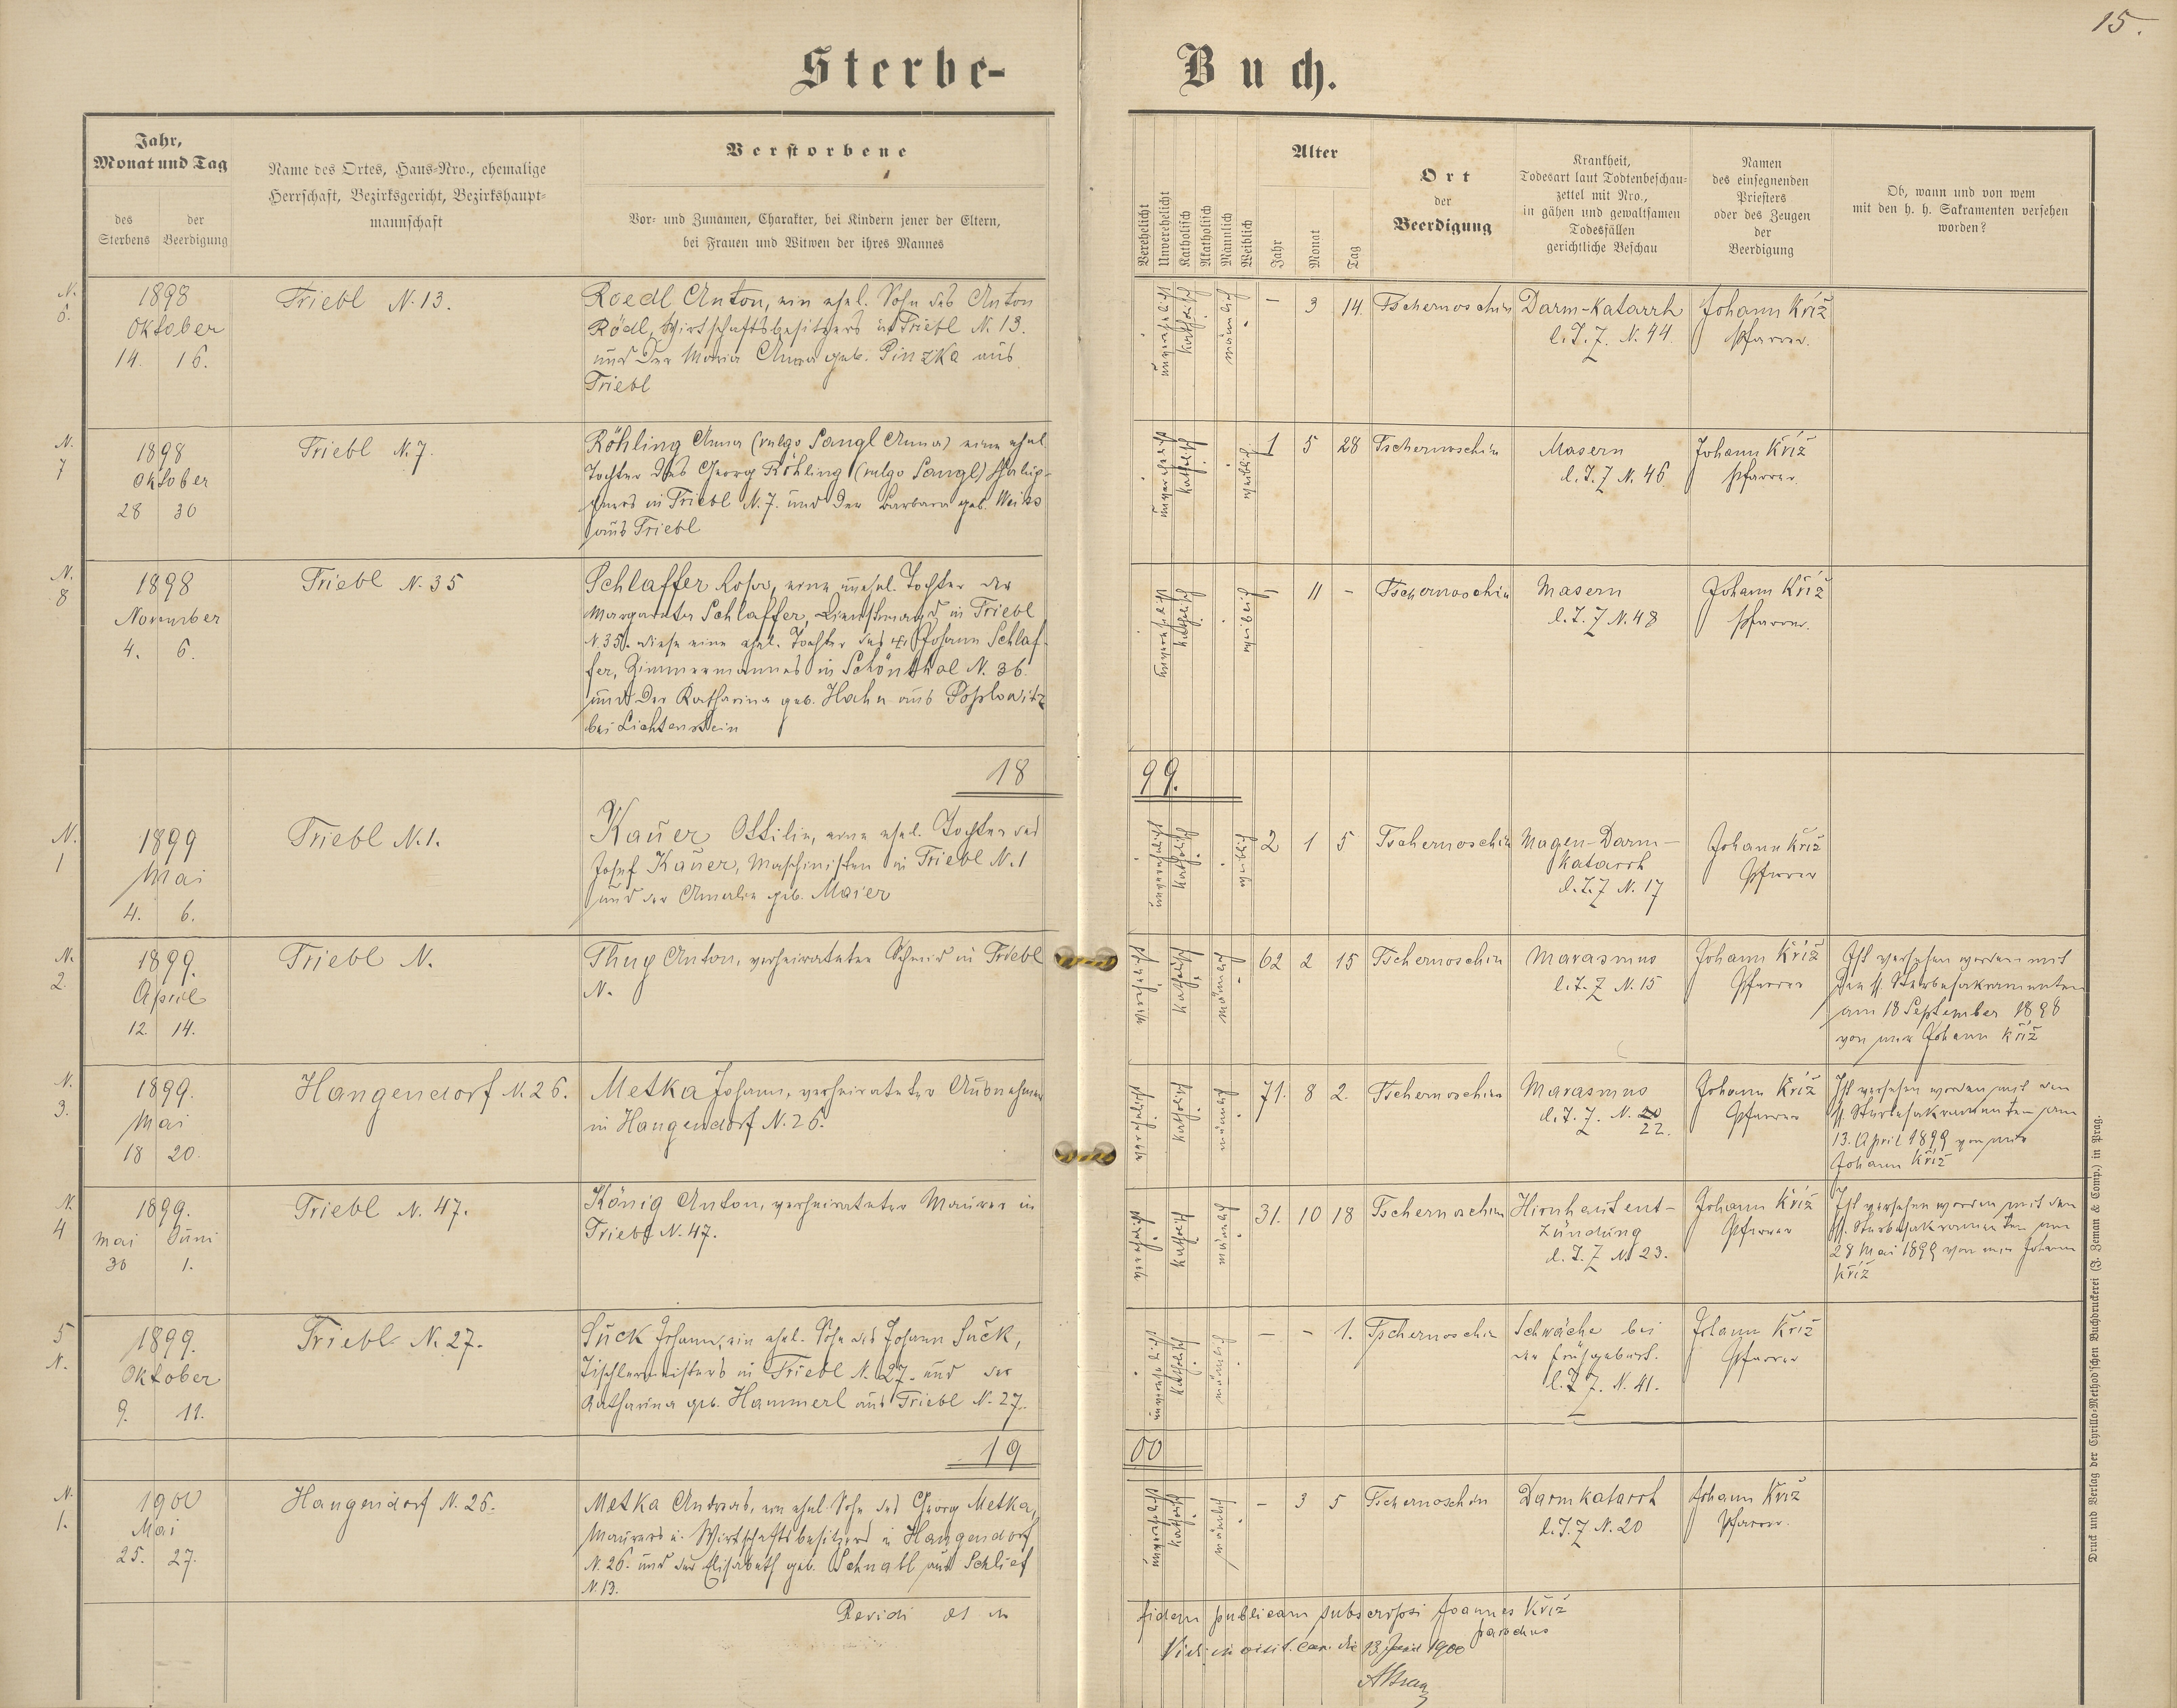 15.
Sterbe-Buch.
Jahr,
Monat und Tag
des Sterbens
der Beerdigung
Name des Ortes, Haus-Nro., ehemalige
Herrschaft, Bezirksgericht, Bezirkshaupt-
mannschaft
Verstorbene
Vor- und Zunamen, Charakter, bei Kindern jener der Eltern,
bei Frauen und Witwen der ihres Mannes
Verehelicht
Unverehelicht
Katholisch
Akatholisch
Männlich
Weiblich
Alter
Jahr
Monat
Tag
Ort
der
Beerdigung
Krankheit,
Todesart laut Todtenbeschau-
zettel mit Nro.,
in gähen und gewaltsamen
Todesfällen
gerichtliche Beschau
Namen
des einsegnenden
Priesters
oder des Zeugen
der
Beerdigung
Ob, wann und von wem
mit den h. h. Sakramenten versehen
worden?
N. 6.
1898
Oktober
14. 16.
Triebl N. 13.
Roedl Anton, ein ehel. Sohn des Anton
Rödl, Wirtschaftsbesitzers in Triebl N. 13.
und der Maria Anna geb. Pinzka aus
Triebl
unverehelicht
katholisch
männlich
- 3 14.
Tschernoschin
Darm-Katarrh
l. T. Z. N. 44.
Johann Kříž
Pfarrer.
N. 7
1898
Oktober
28 30
Triebl N. 7.
Röhling Anna (vulgo Sangl Anna) eine ehel.
Tochter des Georg Röhling (vulgo Sangl) Häus-
lers in Triebl N. 7. und der Barbara geb. Weiss
aus Triebl
unverehelicht
katholisch
weiblich
1 5 28
Tschernoschin
Masern
l. T. Z N. 46
Johann Kříž
Pfarrer.
N. 8
1898
November
4. 6.
Triebl N. 35
Schlaffer Rosa, eine unehel. Tochter der
Margareta Schlaffer, Dienstmagd in Triebl
N. 35. diese eine ehel. Tochter des Johann Schlaf-
fer, Zimmermannes in Schönthal N. 36.
und der Katharina geb. Hahn aus
bei Lichtenstein
unverehelicht
katholisch
weiblich
- 11 -
Tschernoschin
Masern
l. T. Z N. 48
Johann Kříž
Pfarrer.
1899.
N. 1
1899
Mai
4. 6.
Triebl N. 1.
Kauer Ottilie, eine ehel. Tochter des
Josef Kauer, Maschinisten in Triebl N. 1
und der Amalie geb. Maier
unverehelicht
katholisch
weiblich
2 1 5
Tschernoschin
Magen-Darm-
katarrh
l. T. Z N. 17
Johann Kříž
Pfarrer
N. 2.
1899.
April
12. 14.
Triebl N.
Thuy Anton, verheirateter Schmid in Triebl
N.
verehelicht
katholisch
männlich
62 2 15
Tschernoschin
Marasmus
l. T. Z N. 15
Johann Kříž
Pfarrer
Ist versehen worden mit
den hl. Sterbesakramenten
am 18 September 1898
von mir Johann Kříž
N. 3.
1899.
Mai
18 20.
Hangendorf N. 26.
Metka Johann, verheirateter Ausnehmer
in Hangendorf N. 26.
verehelicht
katholisch
männlich
71. 8 2.
Tschernoschin
Marasmus
l. T. Z. N. 20
22.
Johann Kříž
Pfarrer
Ist versehen worden mit den
hl. Sterbesakramenten am
13. April 1899 von mir
Johann Kříž
N. 4
1899.
Mai Juni
30 1.
Triebl N. 47.
König Anton, verheirateter Maurer in
Triebl N. 47.
verehelicht
katholisch
männlich
31. 10 18
Tschernoschin
Hirnhautent-
zündung
l. T. Z N. 23.
Johann Kříž
Pfarrer
Ist versehen worden mit den
hl. Sterbesakramenten am
28 Mai 1899 von mir Johann
Kříž
5 N.
1899.
Oktober
9. 11.
Triebl N. 27.
Suck Johann, ein ehel. Sohn des Johann Suck,
Tischlermeisters in Triebl N. 27. und der
Katharina geb. Hammerl aus Triebl N. 27.
unverehelicht
katholisch
männlich
- - 1.
Tschernoschin
Schwäche bei
der Frühgeburt.
l. T. Z. N. 41.
Johann Kříž
Pfarrer
1900
N. 1.
1900
Mai
25. 27.
Hangendorf N. 26.
Metka Andreas, ein ehel. Sohn des Georg Metka,
Maurers u. Wirtschaftsbesitzers in Hangendorf
N. 26. und der Elisabeth geb. Schnabl aus Schlief
N. 13.
unverehelicht
katholisch
männlich
- 3 5
Tschernoschin
Darmkatarrh
l. T. Z N. 20
Johann Kříž
Pfarrer.
Revidi et in fidem publicam subscripsi Joannes Kříž
parochus
Vidi in visit. can. die 13. Junii 1900
Druck und Verlag der Cyrillo-Method'schen Buchdruckerei (J. Zeman & Comp.) in Prag.